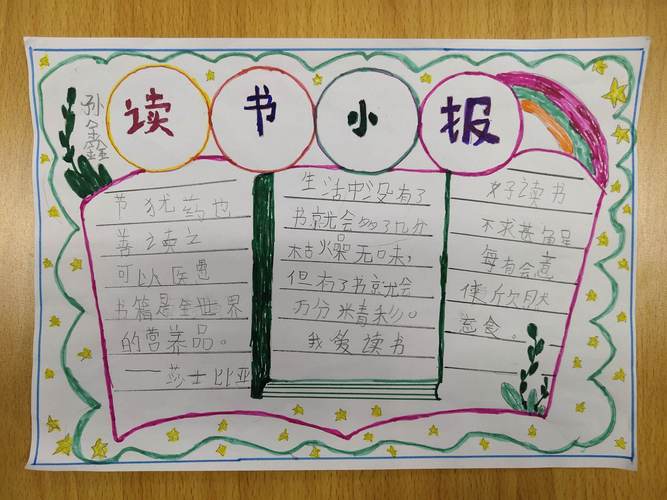 读书小报
孙鑫
书犹药也
善读之
可以医愚
书籍是全世界
的营养品。
——莎士比亚
生活中没有了
书就会
枯燥无味，
但有了书就会
万分精彩。
我爱读书
好读书
不求甚
每有会意
便欣肰
忘食。